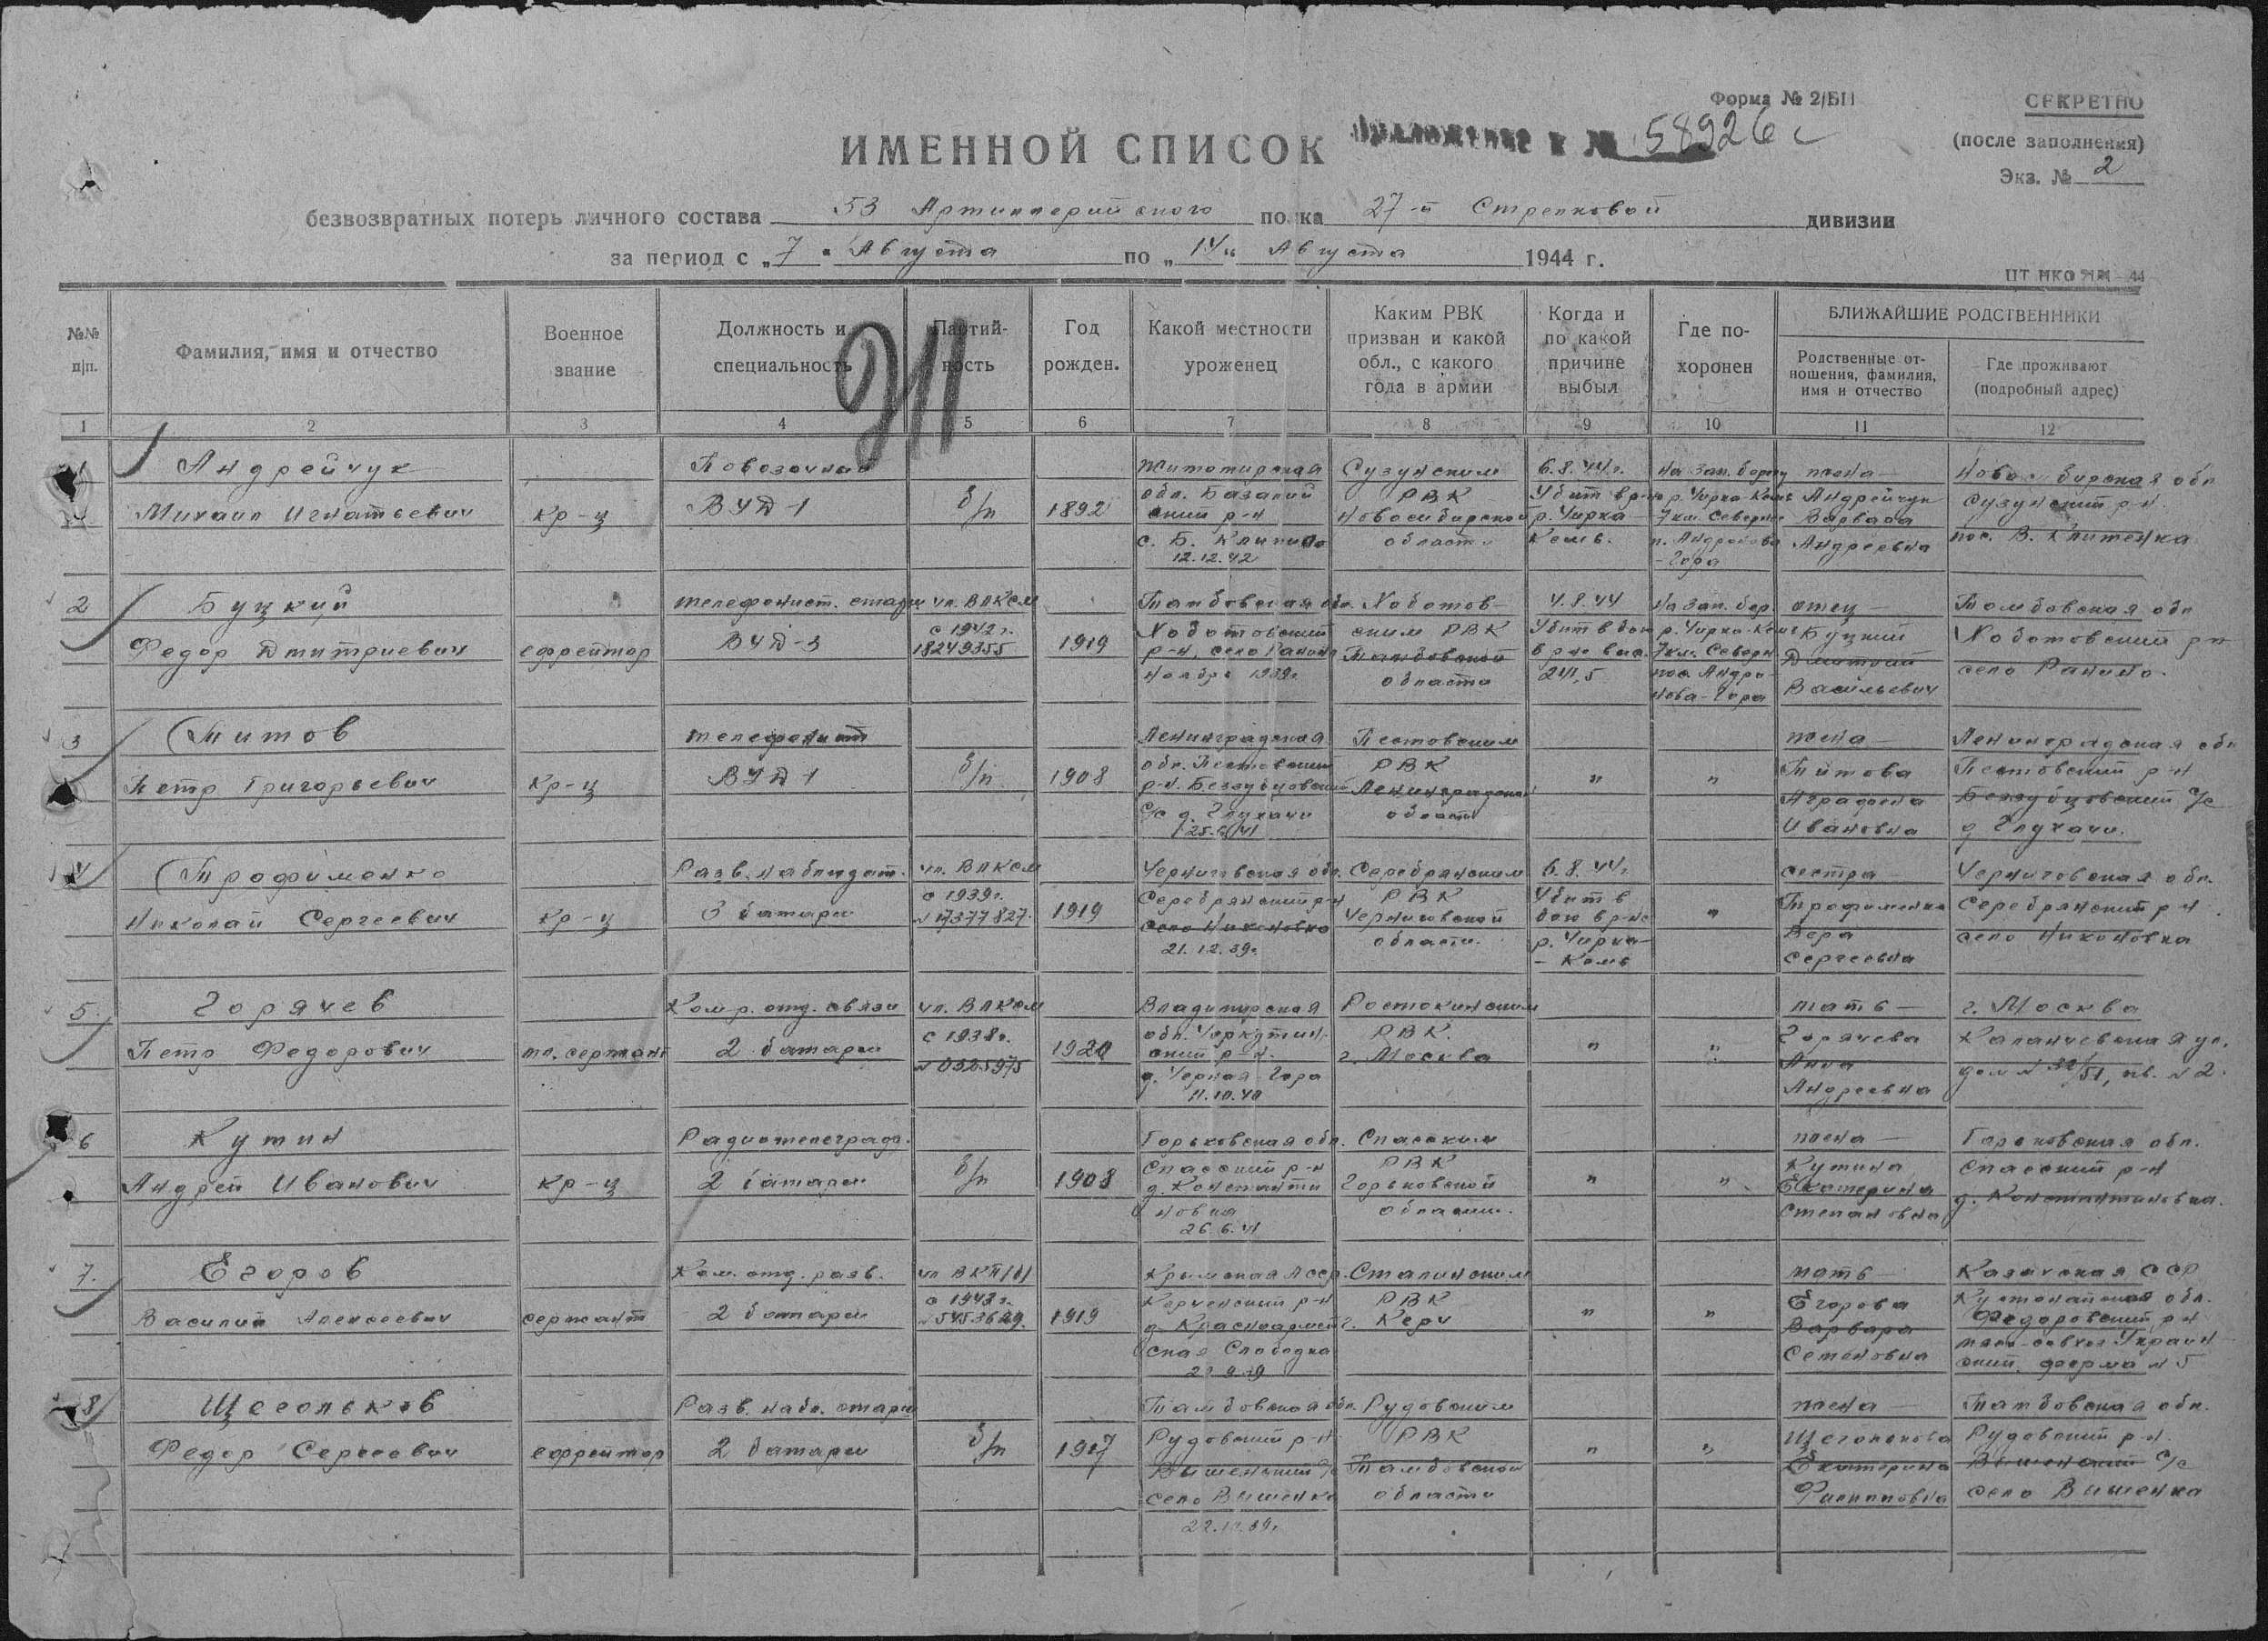 Форма № 2/БП
СЕКРЕТНО
ИМЕННОЙ СПИСОК
Приложение к № 58926 с
(после заполнения)
Экз. № 2
безвозвратных потерь личного состава 53 Артиллерийского полка 27-й Стрелковой дивизии
за период с „7“ Августа по „14“ Августа 1944 г.
911
№№ п/п.
Фамилия, имя и отчество
Военное звание
Должность и специальность
Партий-
ность
Год рожден.
Какой местности уроженец
Каким РВК призван и какой обл., с какого года в армии
Когда и по какой причине выбыл
Где по-
хоронен
БЛИЖАЙШИЕ РОДСТВЕННИКИ
Родственные от-
ношения, фамилия,
имя и отчество
Где проживают
(подробный адрес)
1 2 3 4 5 6 7 8 9 10 11 12
1
Андрейчук
Михаил Игнатьевич
кр-ц
Повозочный
ВУД-1
б/п
1892
Житомирская
обл. Базарий
ский р-н
12.12.42
Сузунским
РВК
Новосибирской
области
6.8.44г.
Убит в р-не
р. Чирка
Кемь.
На зап. берегу
р. Чирка-Кемь
7 км. Севернее
п. Андронова
-Гора
жена —
Андрейчук
Варвара
Андреевна
Новосибирская обл
Сузунский р-н.
пос. В. Клитенка
2
Буцкий
Федор Дмитриевич
ефрейтор
телефонист. старш
ВУД-3
чл. ВЛКСМ
с 1942 г.
18249355
1919
Тамбовская обл.
Хоботовский
р-н, село Ранино
Ноябрь 1939г.
Хоботов-
ским РВК
Тамбовской
области
4.8.44
Убит в бою
в р-не выс.
241,5
На зап. бер.
р. Чирка-Кемь
7 км. Северн
пос. Андро-
нова-Гора
отец —
Буцкий
Дмитрий
Васильевич
Тамбовская обл
Хоботовский р-н
село Ранино.
3
Титов
Петр Григорьевич
кр-ц
телефонист
ВУД-1
б/п
1908
Ленинградская
обл. Пестовский
р-н. Беззубцовский
с/с д. Глухачи
Пестовским
РВК
Ленинградской
области
"
"
жена —
Титова
Аграфена
Ивановна
Ленинградская обл
Пестовский р-н
Беззубцовский с/с
д Глухачи.
4
Трофименко
Николай Сергеевич
кр-ц
Разв. наблюдат.
батареи
чл. ВЛКСМ
с 1939г.
№ 17377827
1919
Черниговская обл.
Серебрянский р-н
село Никоновка
21.12.39г.
Серебрянским
РВК
Черниговской
области.
6.8.44г.
Убит в
бою в р-не
р. Чирка-
- Кемь
"
сестра —
Трофименко
Вера
Сергеевна
Черниговская обл.
Серебрянский р-н.
село Никоновка
5.
Горячев
Петр Федорович
мл. сержант
Ком р. отд. связи
2 батареи
чл. ВЛКСМ
с 1938г.
№ 0325975
1920
Владимирская
обл. Черкутин-
ский р-н.
д. Черная Гора
11.10.40
Ростокинским
РВК.
г. Москва
"
"
мать —
Горячева
Анна
Андреевна
г. Москва
Каланчевская ул.
6
Кутин
Андрей Иванович
кр-ц
Радиотелеграф.
2 батареи
б/п
1908
Горьковская обл.
Спасский р-н
д. Константи
новка
26.6.41
Спасским
РВК
Горьковской
области.
"
"
жена —
Кутина
Екатерина
Степановна
Горьковская обл.
Спасский р-н
д. Константиновка.
7.
Егоров
Василий Алексеевич
сержант
Ком. отд. разв.
2 батареи
чл ВКП/б/
с 1943 г.
№ 5453629
1919
Крымская АССР.
Керченский р-н
д. Красноармей
ская Слободка
Сталинским
РВК
г. Керч
"
"
мать
Егорова
Варвара
Семеновна
Казахская ССР
Кустанайская обл.
Федоровский р-н
мясо-совхоз Украин
ский, ферма № 5
8
Щегольков
Федор Сергеевич
ефрейтор
Разв. набл. старш
2 батареи
б/п
1917
Тамбовская обл.
Рудовский р-н
Вышенский с/с
село Вышенка
Рудовским
РВК
Тамбовской
области
"
"
жена —
Щеголькова
Екатерина
Филипповна
Тамбовская обл.
Рудовский р-н.
Вышенский с/с
село Вышенка